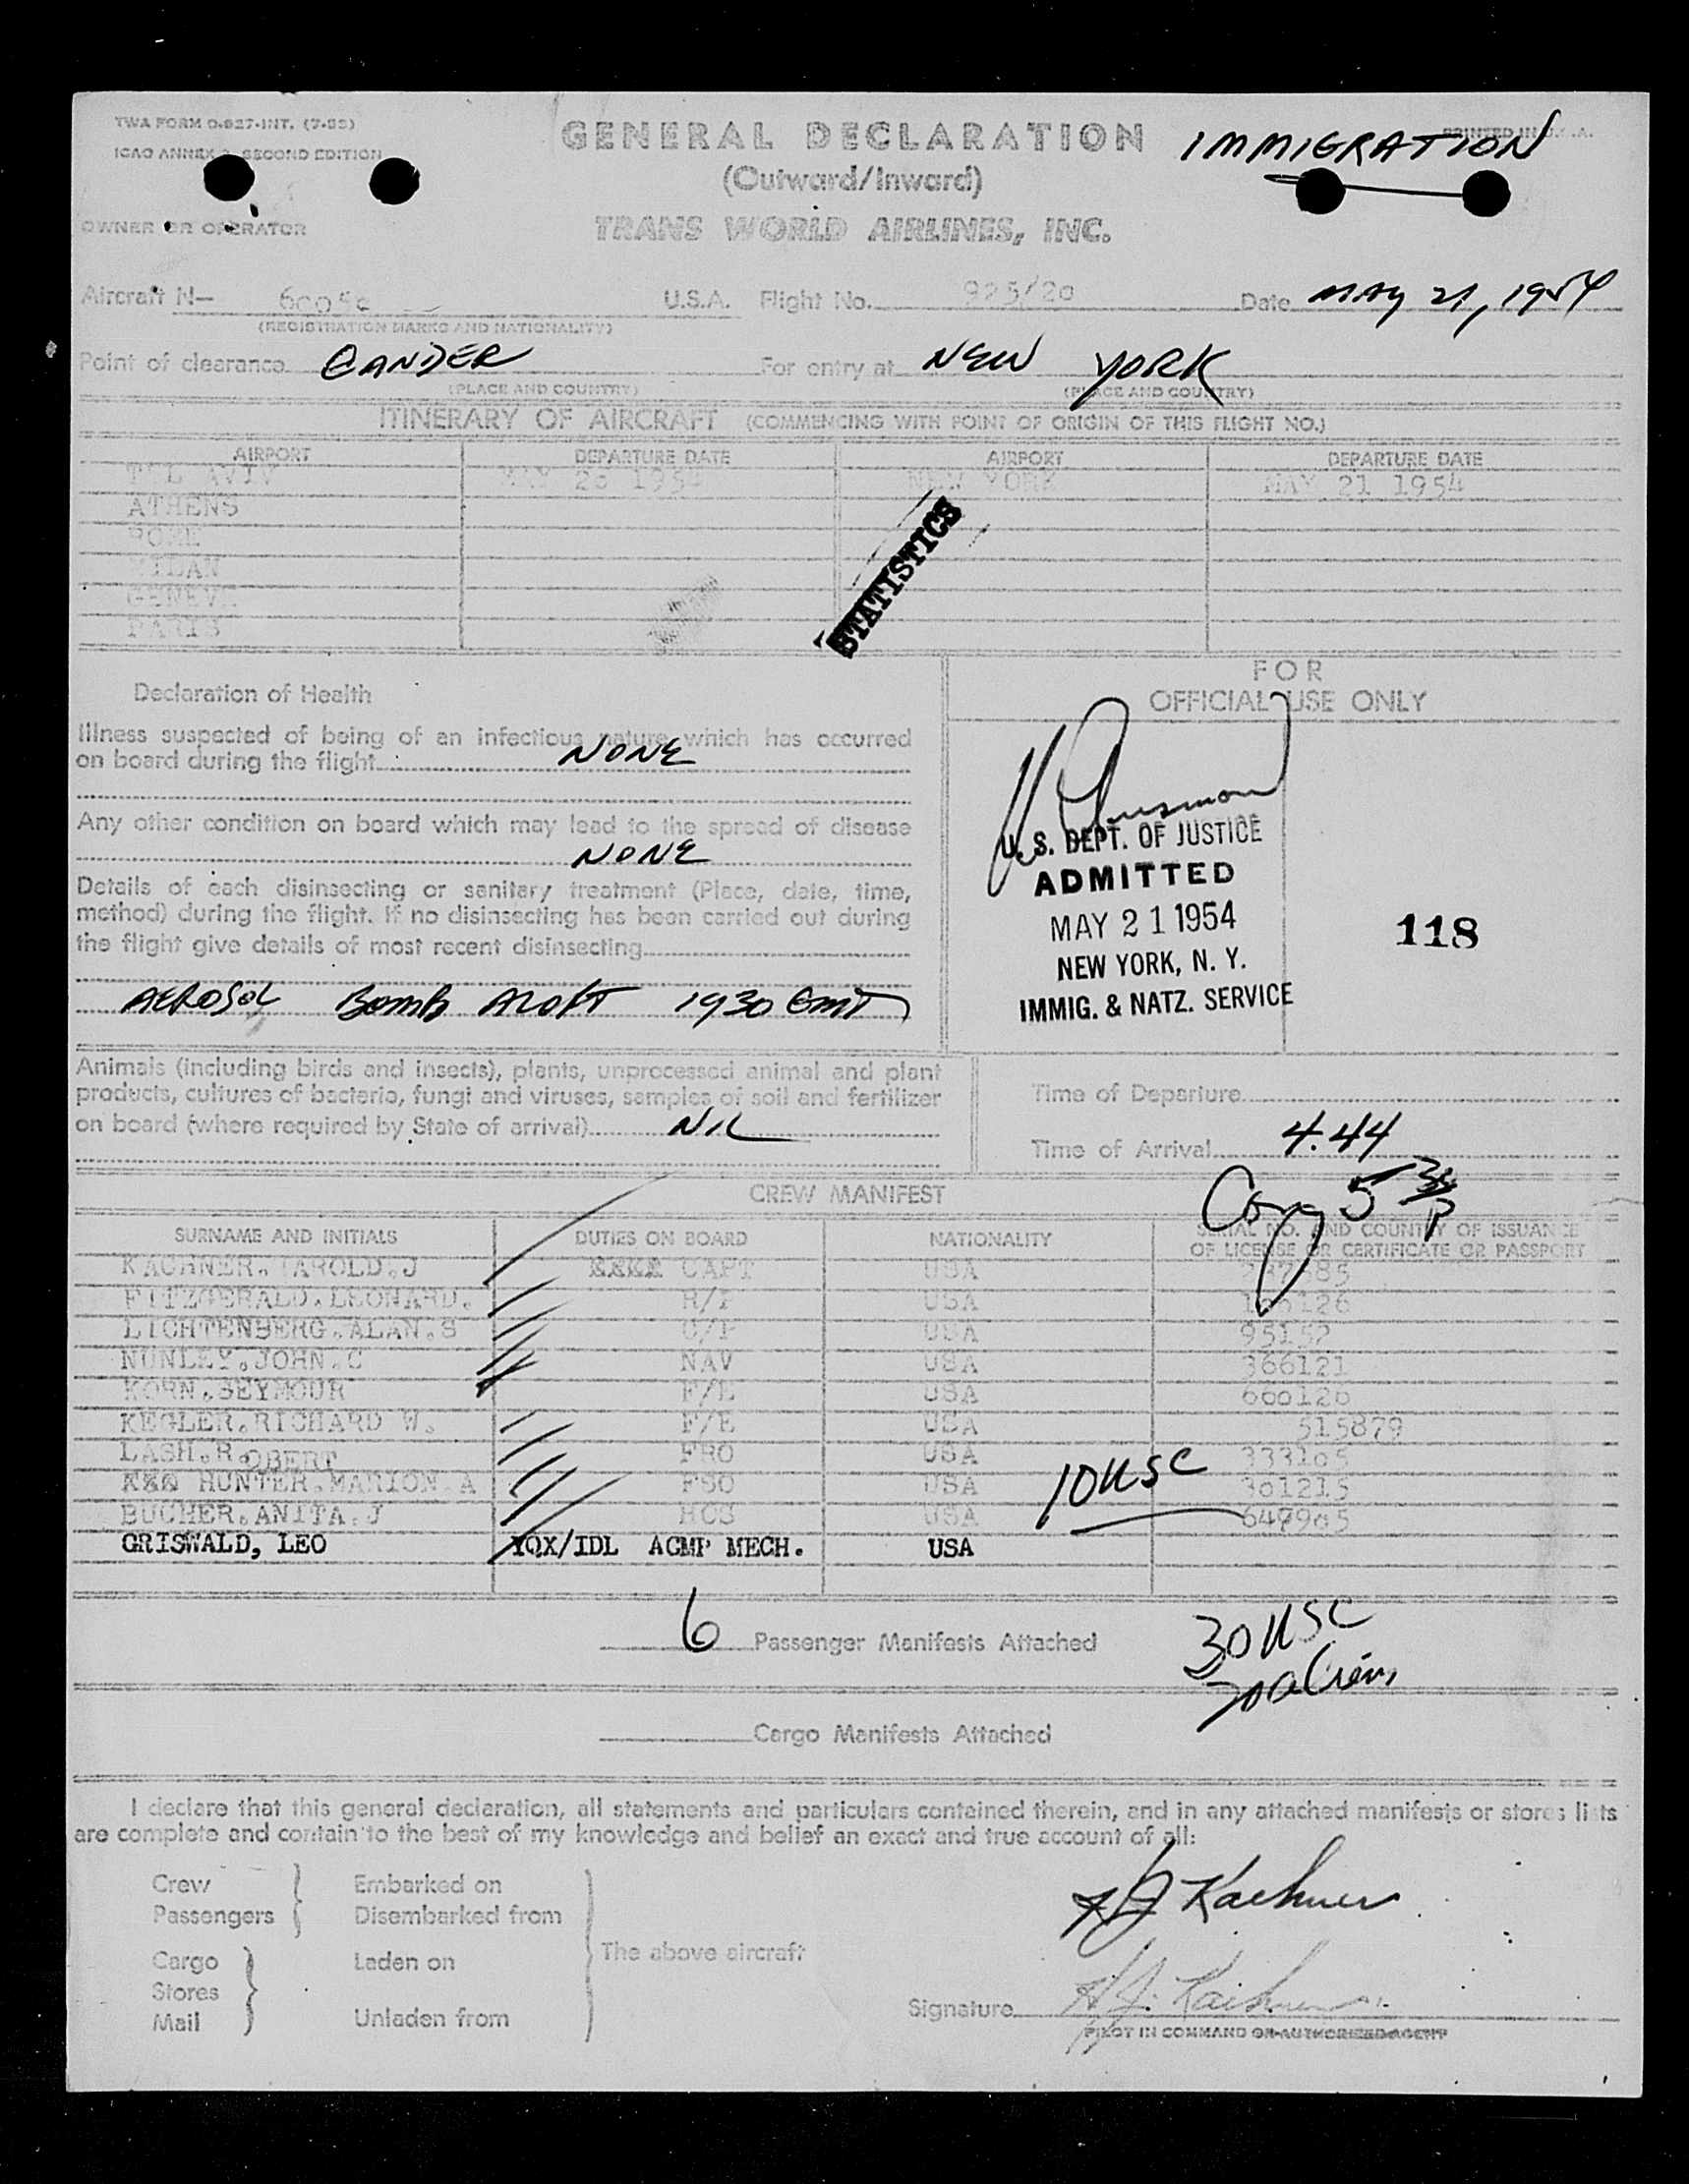 TWA FORM O-827-INT. (7-53)
ICAO ANNEX SECOND EDITION
PRINTED IN U.S.A.
GENERAL DECLARATION
IMMIGRATION
(Outward/Inward)
OWNER OR OPERATOR
TRANS WORLD AIRLINES, INC.
Aircraft N— U.S.A. Flight No. 925/20 Date MAY 21, 1954
(REGISTRATION MARKS AND NATIONALITY)
Point of clearance GANDER For entry at NEW YORK
(PLACE AND COUNTRY) (PLACE AND COUNTRY)
ITINERARY OF AIRCRAFT (COMMENCING WITH POINT OF ORIGIN OF THIS FLIGHT NO.)
AIRPORT DEPARTURE DATE AIRPORT DEPARTURE DATE
TEL AVIV MAY 20 1954 NEW YORK MAY 21 1954
ATHENS
ROME
MILAN
GENEVA
PARIS
STATISTICS
FOR
OFFICIAL USE ONLY
Declaration of Health
Illness suspected of being of an infectious nature which has occurred
on board during the flight NONE
Any other condition on board which may lead to the spread of disease
NONE
Details of each disinsecting or sanitary treatment (Place, date, time,
method) during the flight. If no disinsecting has been carried out during
the flight give details of most recent disinsecting
AEROSOL BOMB ALOFT 1930 GMT
U.S. DEPT. OF JUSTICE
ADMITTED
MAY 21 1954
NEW YORK, N. Y.
IMMIG. & NATZ. SERVICE
118
Animals (including birds and insects), plants, unprocessed animal and plant
products, cultures of bacteria, fungi and viruses, samples of soil and fertilizer
on board (where required by State of arrival) NIL
Time of Departure
Time of Arrival 4.44
CREW MANIFEST
SURNAME AND INITIALS DUTIES ON BOARD NATIONALITY SERIAL NO. AND COUNTRY OF ISSUANCE
OF LICENSE OR CERTIFICATE OR PASSPORT
KACHNER. HAROLD.J XXXX CAPT USA
FITZGERALD.LEONARD. USA
LICHTENBERG.ALAN.S USA
NUNLEY.JOHN.C NAV USA 366121
KORN.SEYMOUR F/E USA 660126
KEGLER.RICHARD W. F/E USA 515879
LASH.ROBERT FRO USA 333105
XXX HUNTER.MARION.A FSO USA 301215
BUCHER.ANITA.J HOS USA
GRISWALD, LEO YQX/IDL ACMP MECH. USA
10 USC
6 Passenger Manifests Attached
30 USC
Cargo Manifests Attached
I declare that this general declaration, all statements and particulars contained therein, and in any attached manifests or stores lists
are complete and contain to the best of my knowledge and belief an exact and true account of all:
Crew Embarked on
Passengers Disembarked from
Cargo Laden on The above aircraft
Stores
Mail Unladen from
HJ Kachner
Signature H.J. Kachner
PILOT IN COMMAND OR AUTHORIZED AGENT